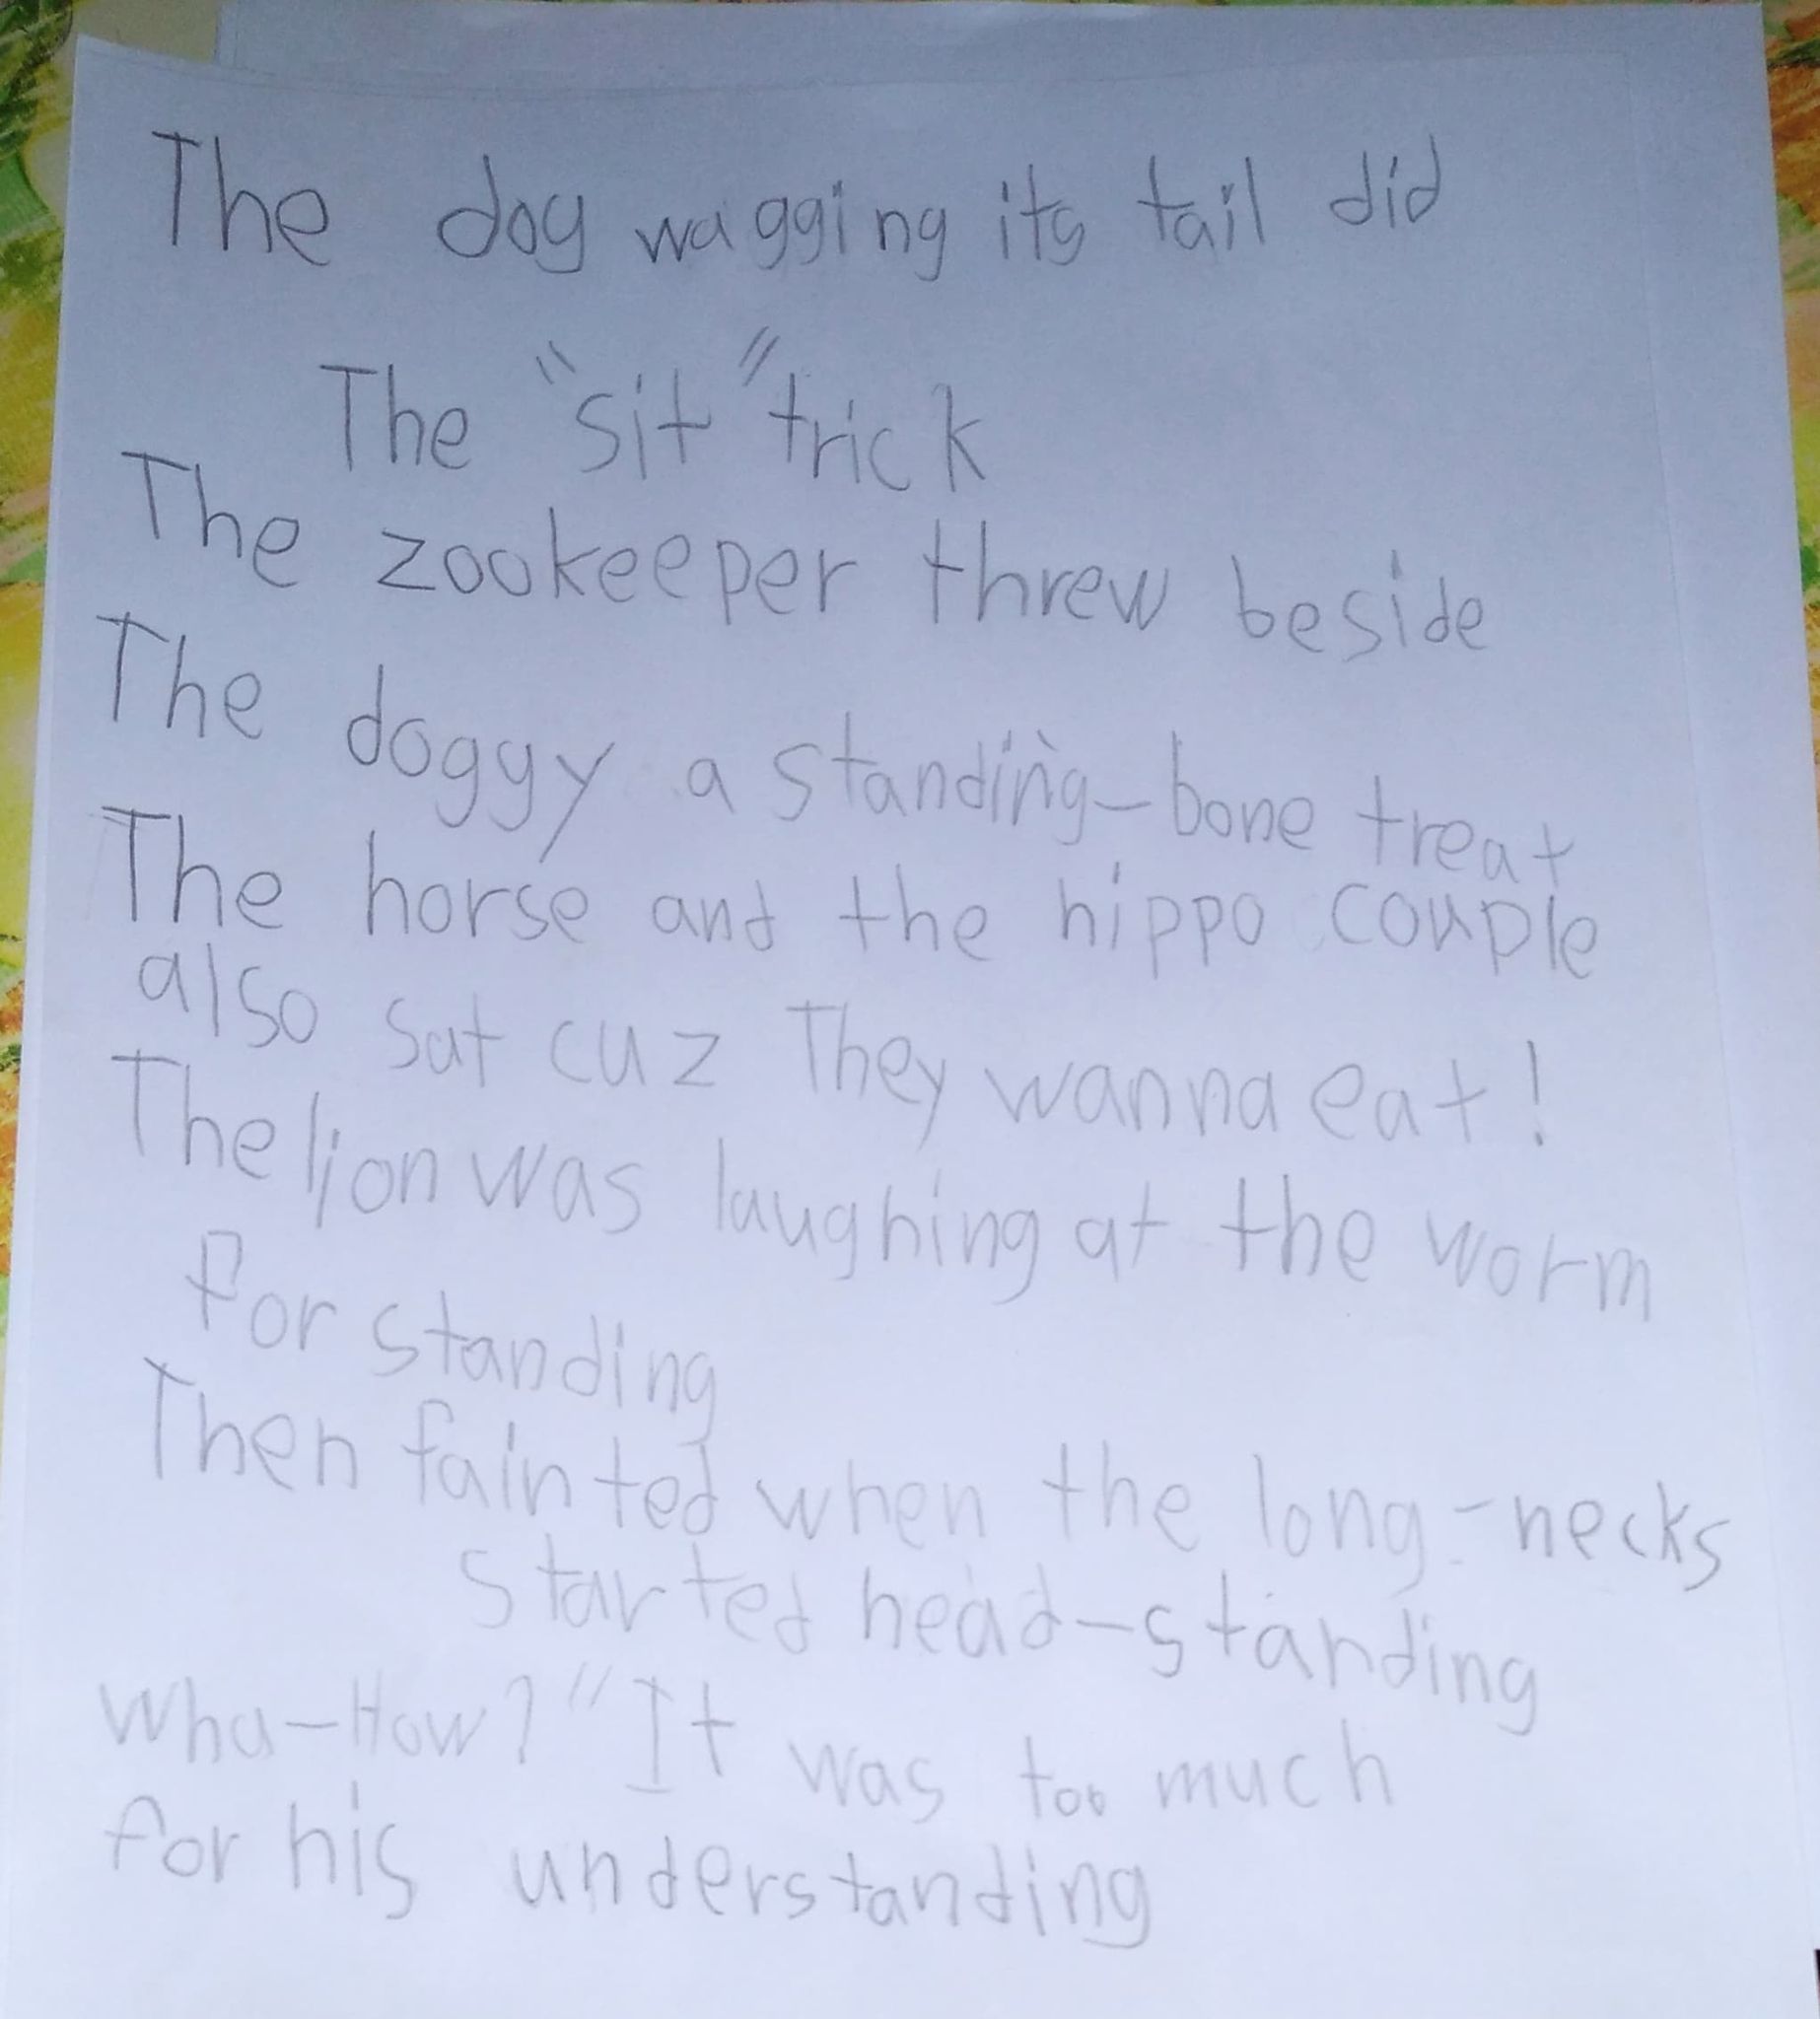 The dog wagging its tail did
The "sit" trick
The zookeeper threw beside
The doggy a standing-bone treat
The horse and the hippo couple
also sat cuz They wanna eat!
The lion was laughing at the worm
for standing
Then fainted when the long-necks
started head-standing
Wha-How?" It was too much
for his understanding